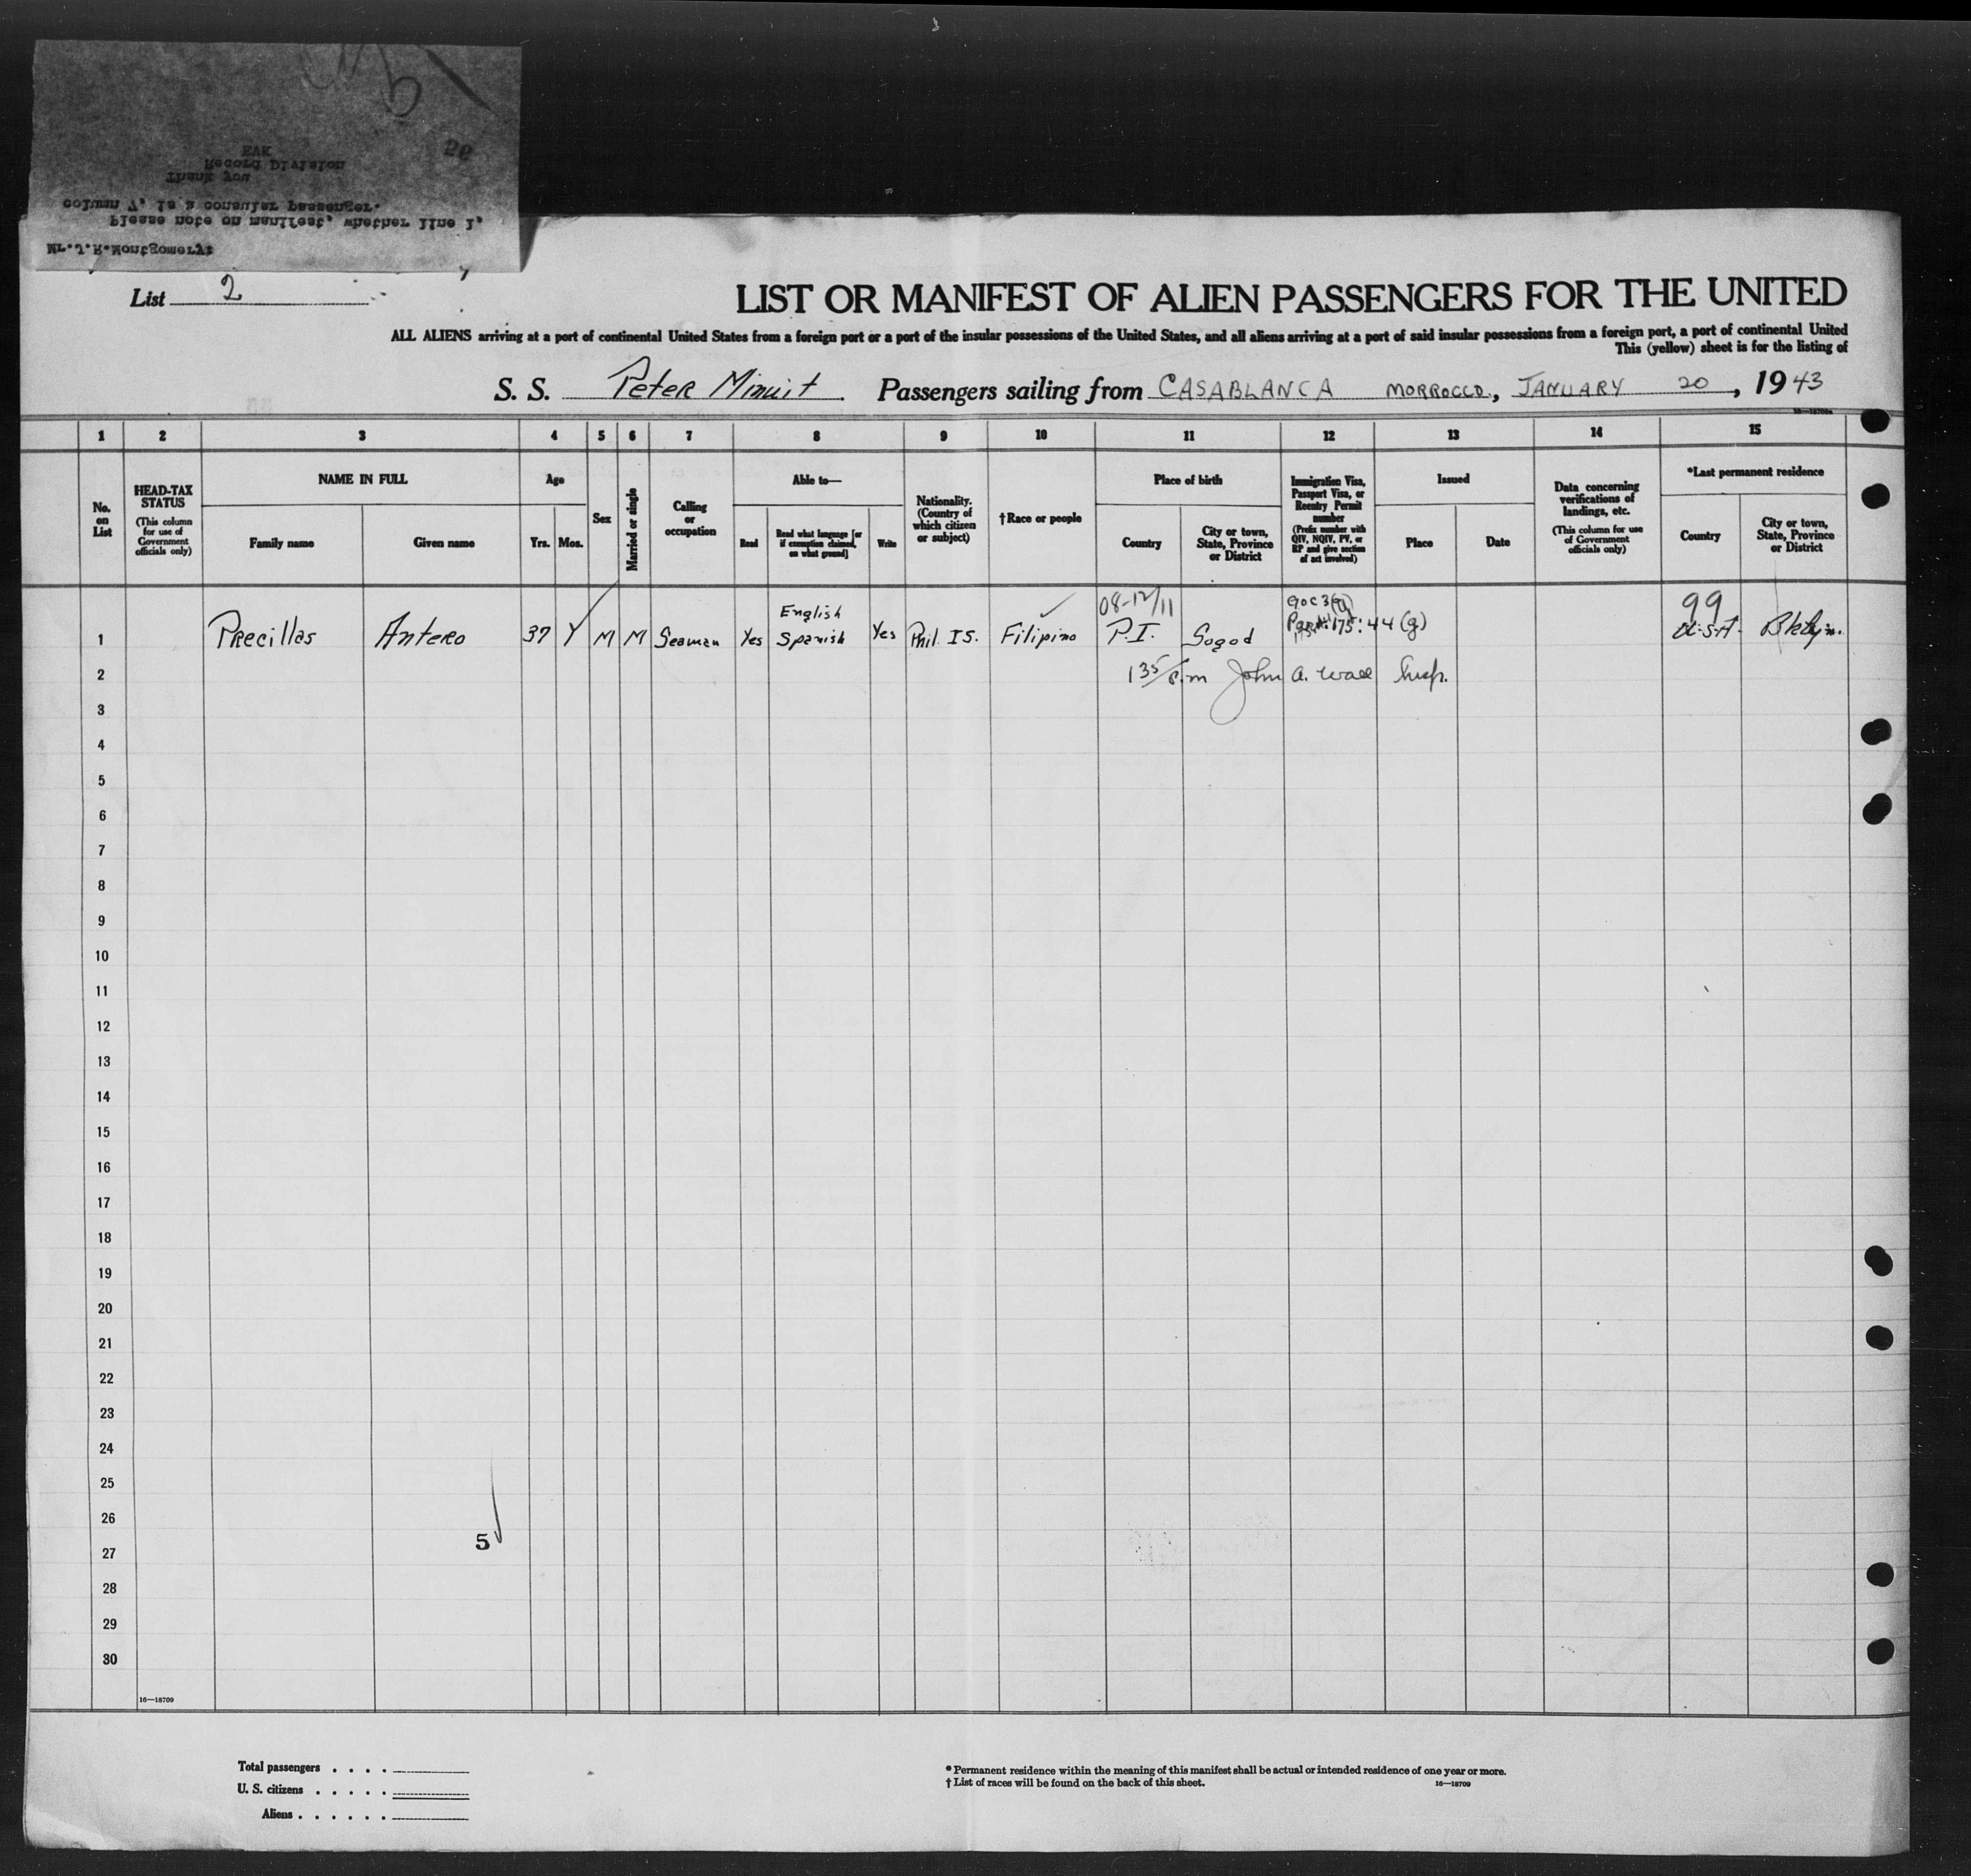 Mr.J.R.Montgomery:
Please note on manifest, whether line 1,
column 7, is a consular passenger.
Thank you
Record Division
EAK
List 2
LIST OR MANIFEST OF ALIEN PASSENGERS FOR THE UNITED
ALL ALIENS arriving at a port of continental United States from a foreign port or a port of the insular possessions of the United States, and all aliens arriving at a port of said insular possessions from a foreign port, a port of continental United
This (yellow) sheet is for the listing of
S. S. Peter Minuit. Passengers sailing from CASABLANCA MORROCCO, JANUARY 20, 1943
1 2 3 4 5 6 7 8 9 10 11 12 13 14 15
No. on List
HEAD-TAX STATUS
(This column for use of Government officials only)
NAME IN FULL
Family name
Given name
Age
Yrs.
Mos.
Sex
Married or single
Calling or occupation
Able to—
Read
Read what language [or if exemption claimed, on what ground]
Write
Nationality. (Country of which citizen or subject)
†Race or people
Place of birth
Country
City or town, State, Province or District
Immigration Visa, Passport Visa, or Reentry Permit number
(Prefix number with QIV, NQIV, PV, or RP and give section of act involved)
Issued
Place
Date
Data concerning verifications of landings, etc.
(This column for use of Government officials only)
*Last permanent residence
Country
City or town, State, Province or District
08-12/11
99
English
1 Precillas Antero 37 Y M M Seaman Yes Spanish Yes Phil. IS. Filipino P.I. Sogod 175:44 (g) U.S.A. Bklyn.
2 135/P.m John A. Wall Insp.
3
4
5
6
7
8
9
10
11
12
13
14
15
16
17
18
19
20
21
22
23
24
25
26
5
27
28
29
30
16—18709
Total passengers . . . .
U. S. citizens . . . . .
Aliens . . . . . .
* Permanent residence within the meaning of this manifest shall be actual or intended residence of one year or more.
† List of races will be found on the back of this sheet.
16—18709